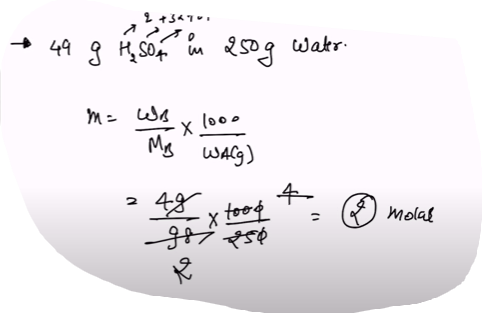 2 + 32 +
→ 49 g H₂SO₄ in 250g water.
m = WB/MB × 1000/WA(g)
= 49/98 × 1000/250 4 = 2 molal
2